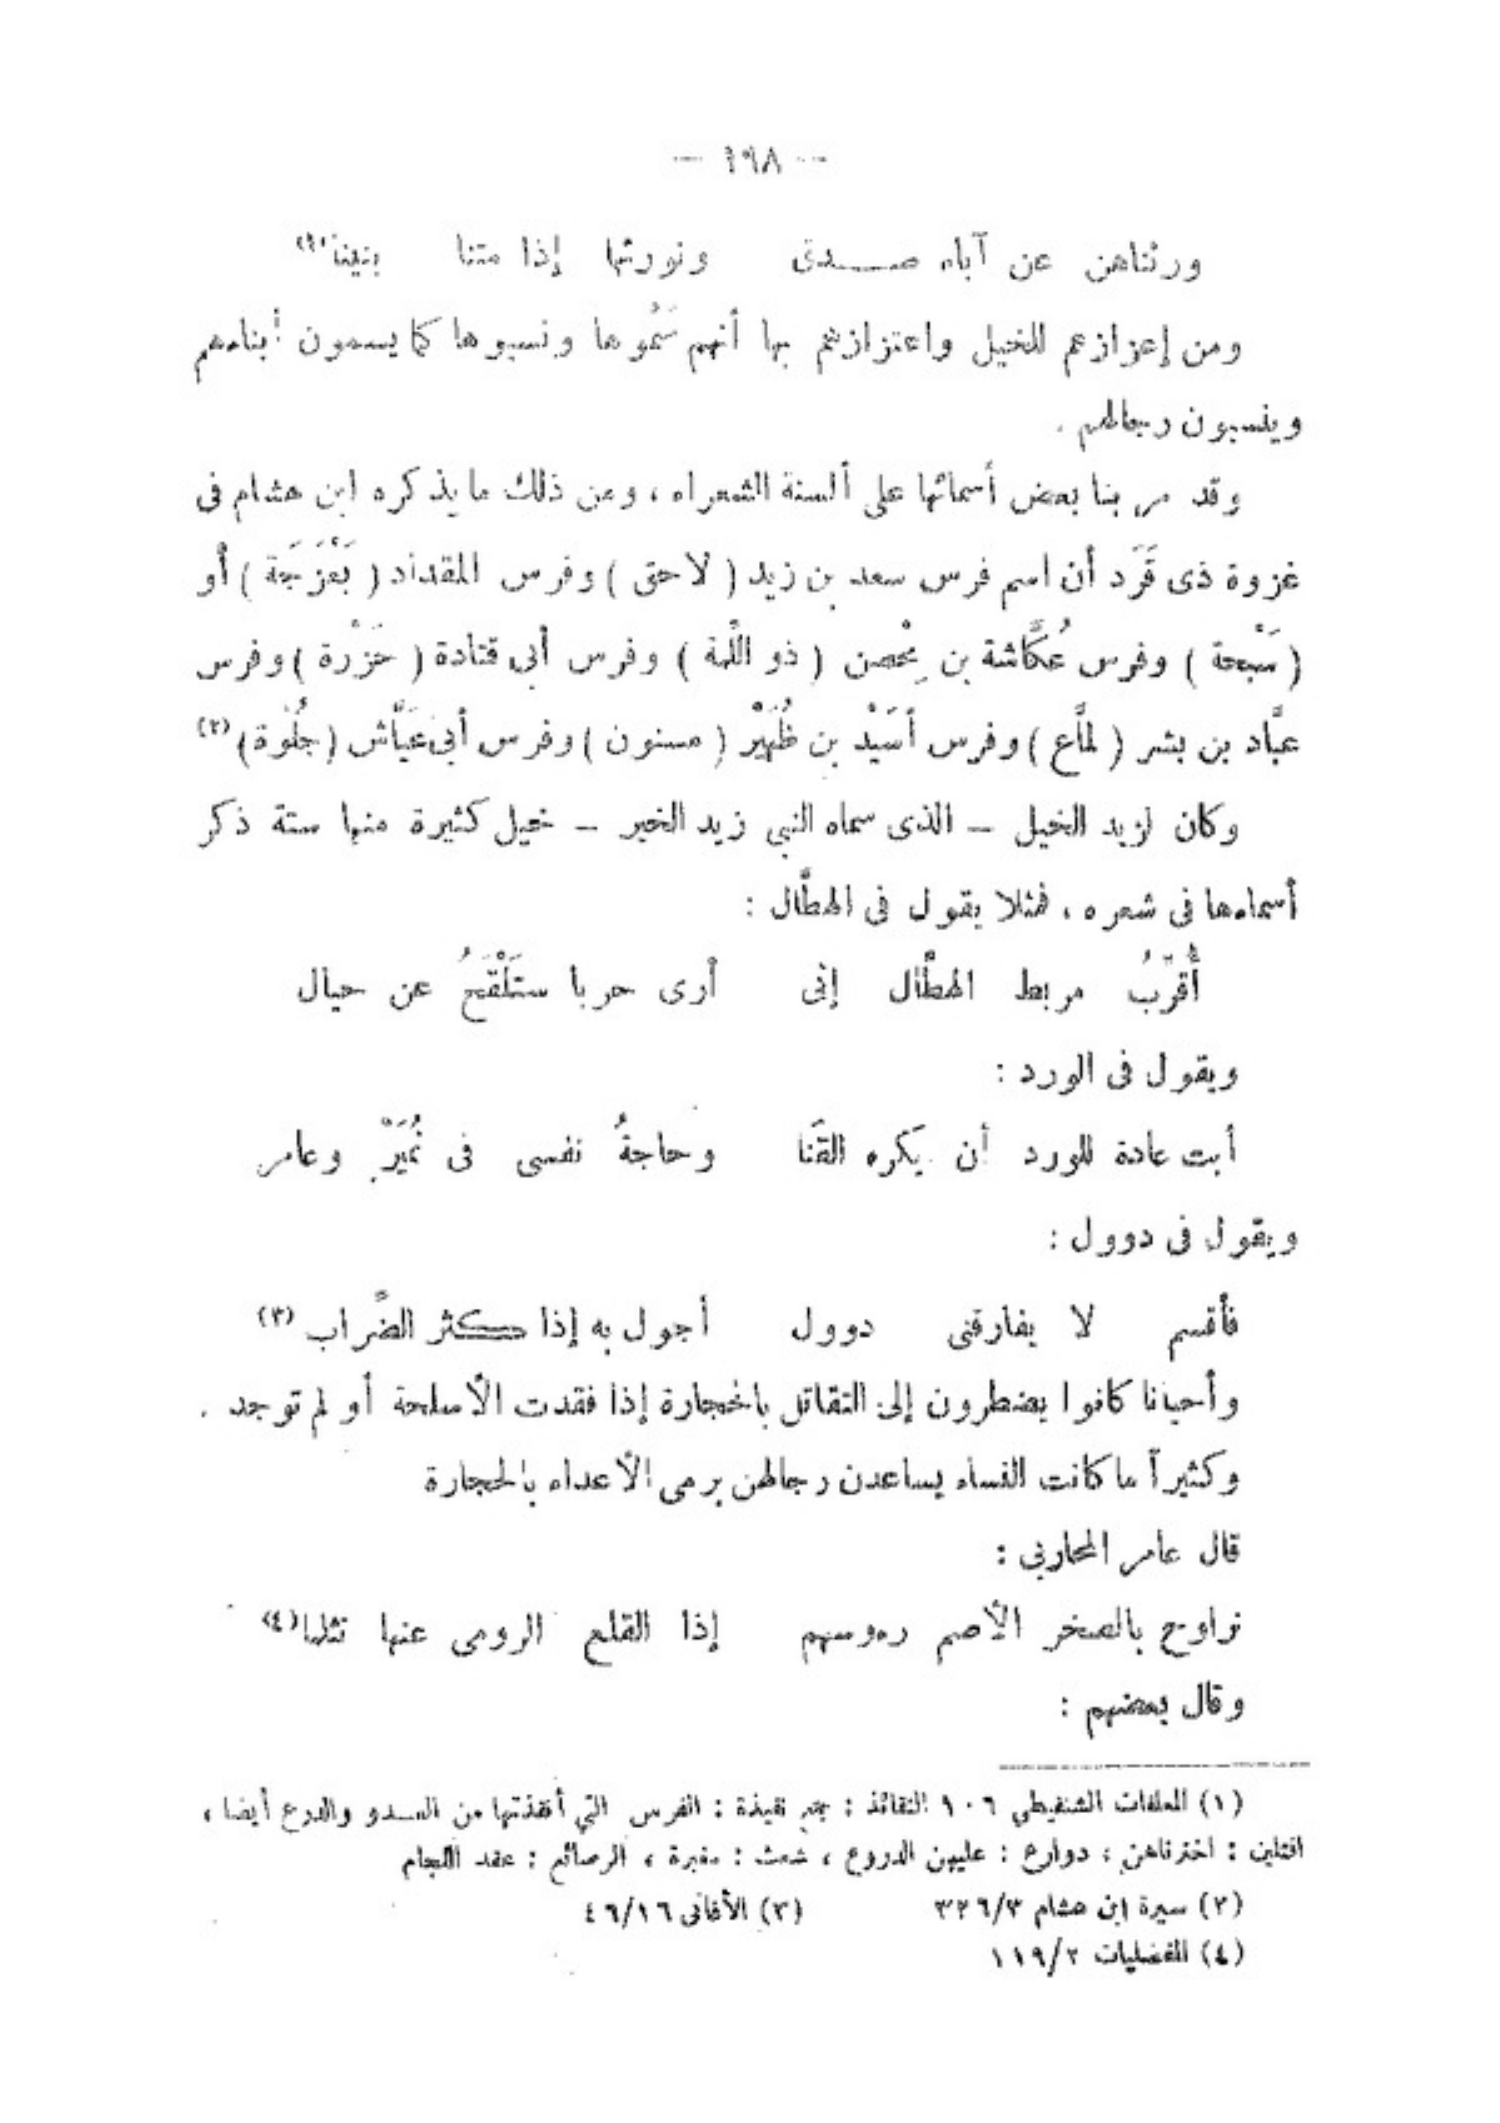 — ١٩٨ —
ورثناهن عن آباء صـــدق ونورثها إذا متنا بنينا(١)
ومن إعزازهم للخيل واعتزازهم بها أنهم سَمُوها ونسبوها كما يسمون أبناءهم
وينسبون رجالهم .
وقد مر بنا بعض أسمائها على ألسنة الشعراء ، ومن ذلك ما يذكره ابن هشام فى
غزوة ذى قَرَد أن اسم فرس سعد بن زيد ( لاحق ) وفرس المقداد ( بَعْزَجَة ) أو
( سَبْحة ) وفرس عُكَّاشة بن مِحْصن ( ذو اللَّمة ) وفرس أبى قتادة ( حَزْرة ) وفرس
عبَّاد بن بشر ( لمَّاع ) وفرس أسَيْد بن ظُهَيْر ( مسنون ) وفرس أبى عَيَّاش ( جُلْوة ) (٢)
وكان لزيد الخيل – الذى سماه النبي زيد الخير – خيل كثيرة منها ستة ذكر
أسماءها فى شعره ، فمثلا يقول فى الهطَّال :
أُقَرِّبُ مربط الهطَّال إنى أرى حربا ستَلْقَحُ عن حيال
ويقول فى الورد :
أبت عادة للورد أن يَكره القَنا وحاجةُ نفسى فى نُمَيْرٍ وعامر
ويقول فى دوول :
فأقسم لا يفارقنى دوول أجول به إذا كثر الضَّراب (٣)
وأحيانا كانوا يضطرون إلى التقاتل بالحجارة إذا فقدت الأسلحة أو لم توجد .
وكثيراً ما كانت النساء يساعدن رجالهن برمى الأعداء بالحجارة
قال عامر المحاربى :
نراوح بالصخر الأصم رءوسهم إذا القلع الرومى عنها تثلما(٤)
وقال بعضهم :
(١) المعلقات الشنقيطي ١٠٦ النقائذ : جمع نقيذة : الفرس التي أنقذتها من العـدو والدرع أيضا ،
افتلين : اخترناهن ، دوارع : عليهن الدروع ، شعث : مغبرة ، الرصائع : عقد اللجام
(٢) سيرة ابن هشام ٣/٣٢٦ (٣) الأغانى ١٦/٤٦
(٤) المفضليات ٢/١١٩